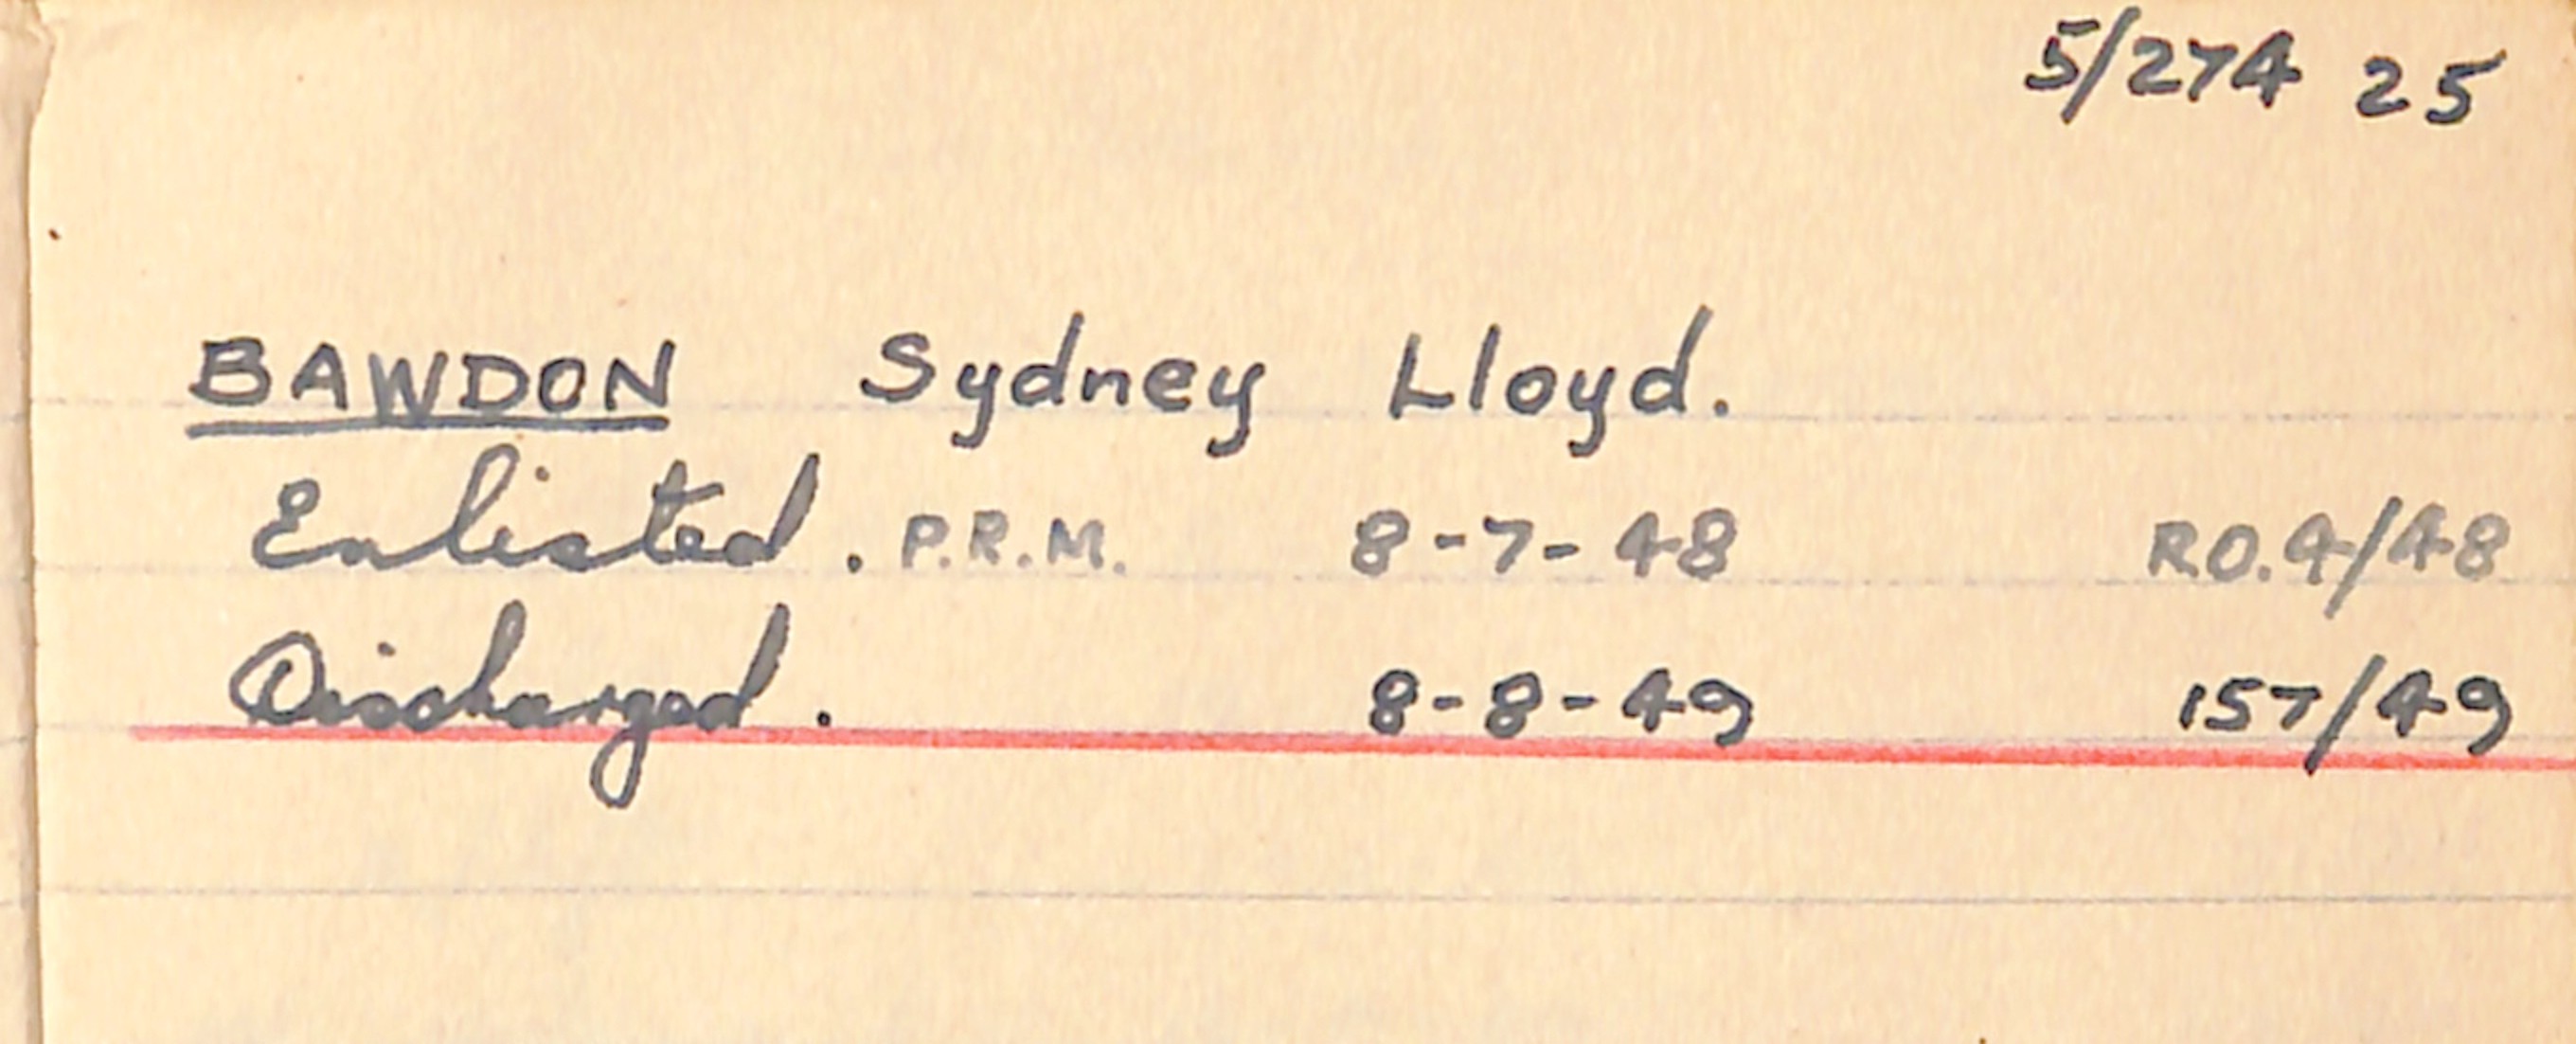 5/274 25
BAWDON Sydney Lloyd.
Enlisted. P.R.M. 8-7-48 R.O.4/48
Discharged. 8-8-49 157/49